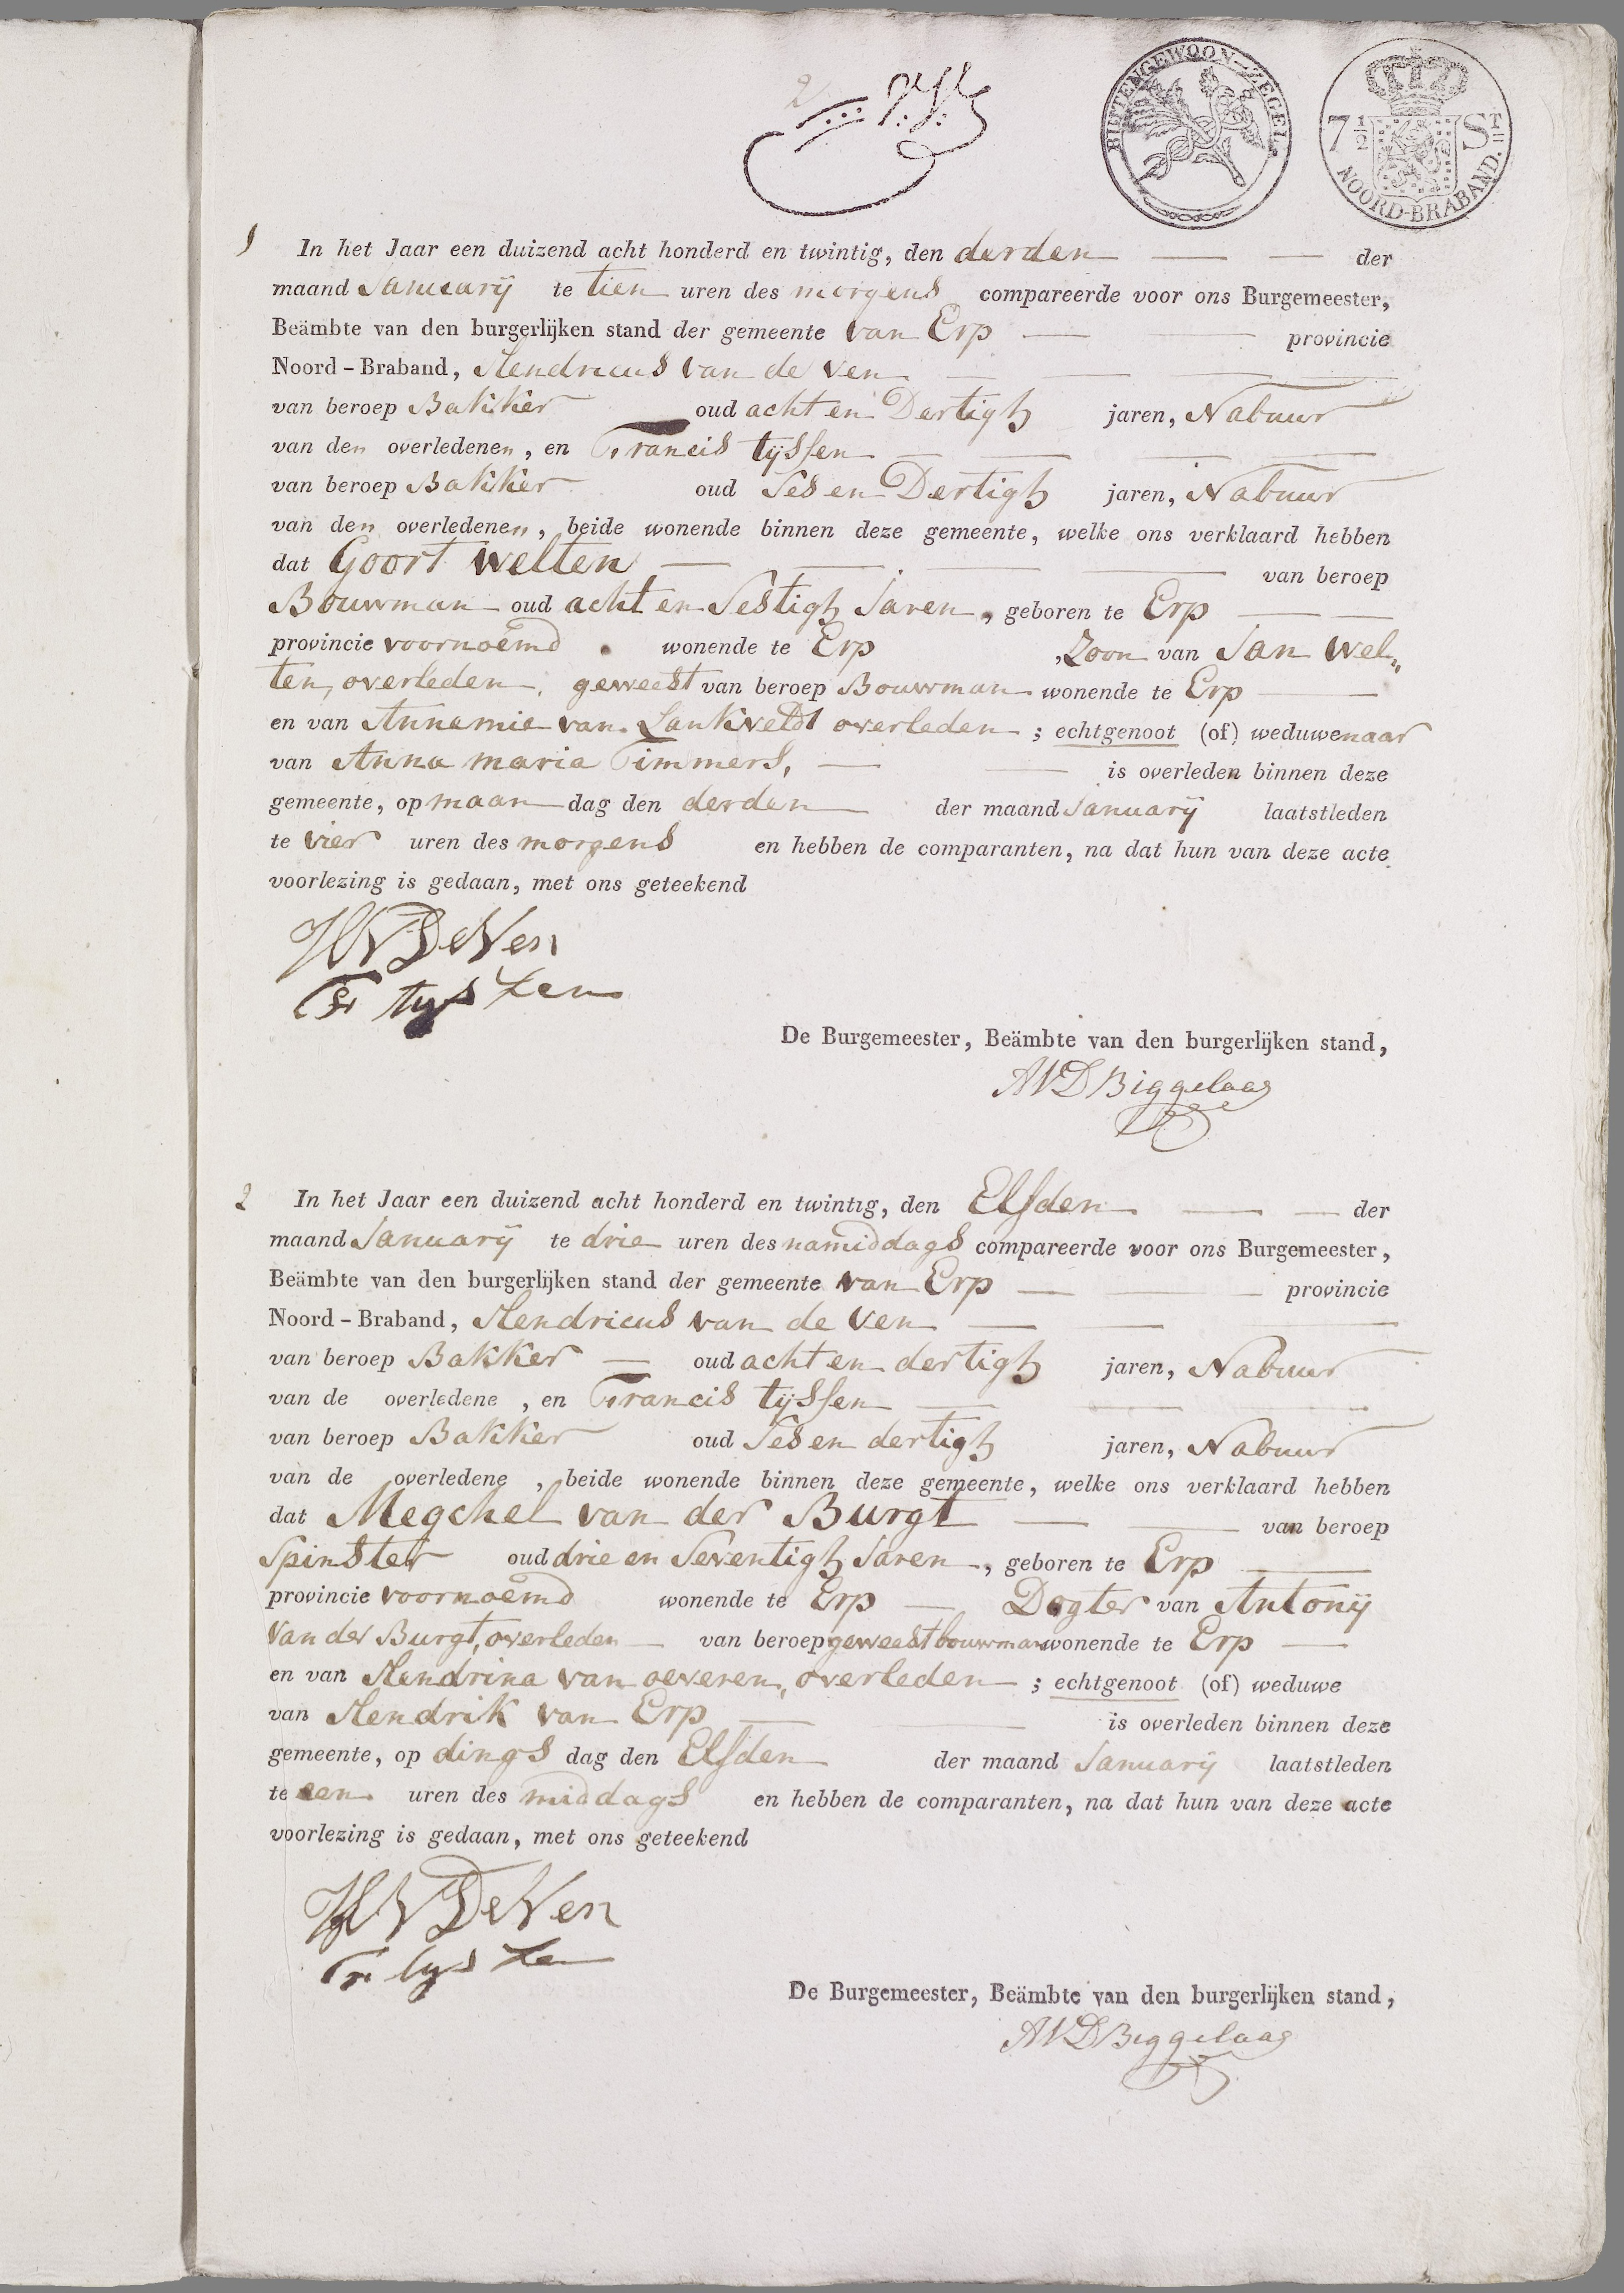 2
BUITENGEWOON-ZEGEL
7½ St
NOORD-BRABAND.
1 In het Jaar een duizend acht honderd en twintig, den derden der
maand Januarÿ te tien uren des morgens compareerde voor ons Burgemeester,
Beämbte van den burgerlijken stand der gemeente van Erp provincie
Noord-Braband, Hendricus van de Ven
van beroep Bakker oud acht en Dertigh jaren, Nabuur
van den overledenen, en Francis tÿssen
van beroep Bakker oud Ses en Dertigh jaren, Nabuur
van den overledenen, beide wonende binnen deze gemeente, welke ons verklaard hebben
dat Goort Welten van beroep
Bouwman oud acht en Sestigh Jaren, geboren te Erp
provincie voornoemd wonende te Erp, Zoon van Jan Wel„
ten, overleden, geweest van beroep Bouwman wonende te Erp
en van Annamie van Lankveldt overleden; echtgenoot (of) weduwenaar
van Anna maria Timmers, is overleden binnen deze
gemeente, op maan dag den derden der maand Januarÿ laatstleden
te vier uren des morgens en hebben de comparanten, na dat hun van deze acte
voorlezing is gedaan, met ons geteekend
HVDeVen
Fr tyssen
De Burgemeester, Beämbte van den burgerlijken stand,
AVDBiggelaar
2 In het Jaar een duizend acht honderd en twintig, den Elfden der
maand Januarÿ te drie uren des namiddags compareerde voor ons Burgemeester,
Beämbte van den burgerlijken stand der gemeente van Erp provincie
Noord-Braband, Hendricus van de Ven
van beroep Bakker oud acht en dertigh jaren, Nabuur
van de overledene, en Francis tÿssen
van beroep Bakker oud Ses en dertigh jaren, Nabuur
van de overledene, beide wonende binnen deze gemeente, welke ons verklaard hebben
dat Megchel van der Burgt van beroep
Spinster oud drie en Seventigh Jaren, geboren te Erp
provincie voornoemd wonende te Erp Dogter van Antonÿ
van der Burgt, overleden van beroep geweest bouwman wonende te Erp
en van Hendrina van oeveren, overleden; echtgenoot (of) weduwe
van Hendrik van Erp is overleden binnen deze
gemeente, op dings dag den Elfden der maand Januarÿ laatstleden
te een uren des middags en hebben de comparanten, na dat hun van deze acte
voorlezing is gedaan, met ons geteekend
HVDeVen
Fr tyssen
De Burgemeester, Beämbte van den burgerlijken stand,
AVDBiggelaar